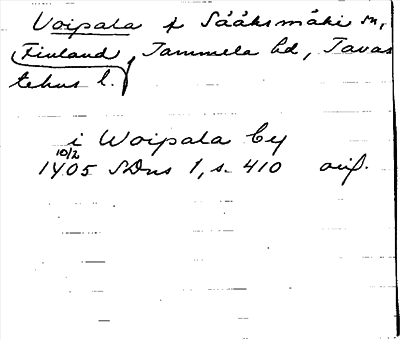 Voipala f Sääksmäki sn,
Finland, Tammela hd, Tavas
tehus l.
i Woipala by
10/2
1405 SDns 1, s. 410 avf.